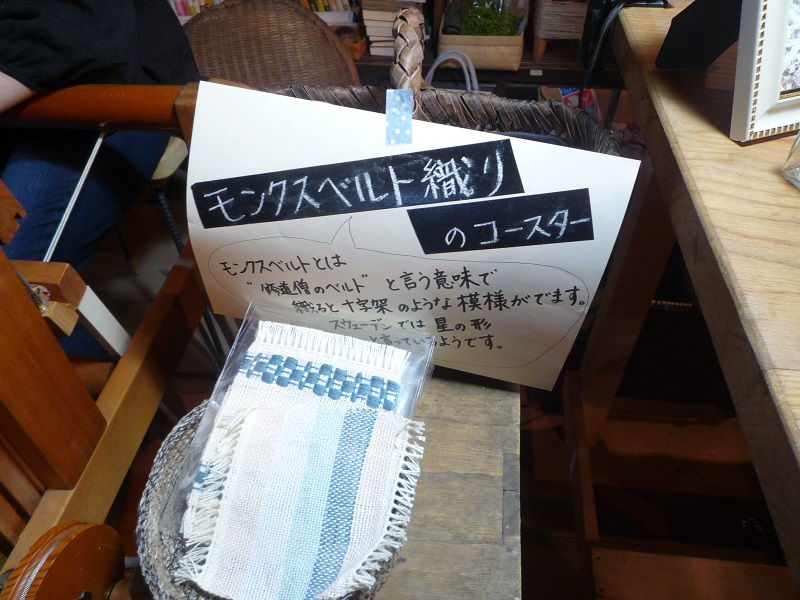 モンクスベルト織り
のコースター
モンクスベルトとは
"修道僧のベルト"と言う意味で
織ると十字架のような模様がでます。
スウェーデンでは星の形
と言っているようです。